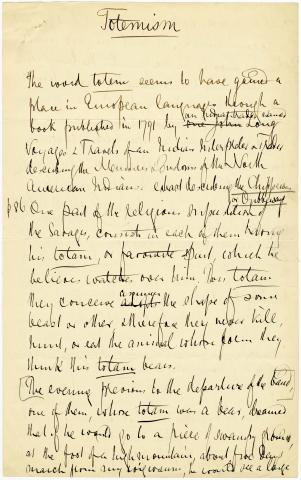 Totemism
The word totem seems to have gained a
place in European languages through a
book published in 1791 by one John Long
an Indian trader, named
Voyages & Travels of an Indian Interpreter & Trader
describing the Manners & Customs of the North
American Indians. describing the Chippeway
or Ojibway
p 86 One part of the religious superstition of
the Savages, consists in each of them having
his totam, or favourite spirit, which he
believes watches over him. This totam
they conceive assumes the shape of some
beast or other, & therefore they never kill,
hunt, or eat the animal whose form they
think this totam bears.
The evening previous to the departure of the band,
one of them, whose totam was a bear, dreamed
that if he would go to a piece of swampy ground
at the foot of a high mountain, about five days
march from my wigwaum, he would see a large